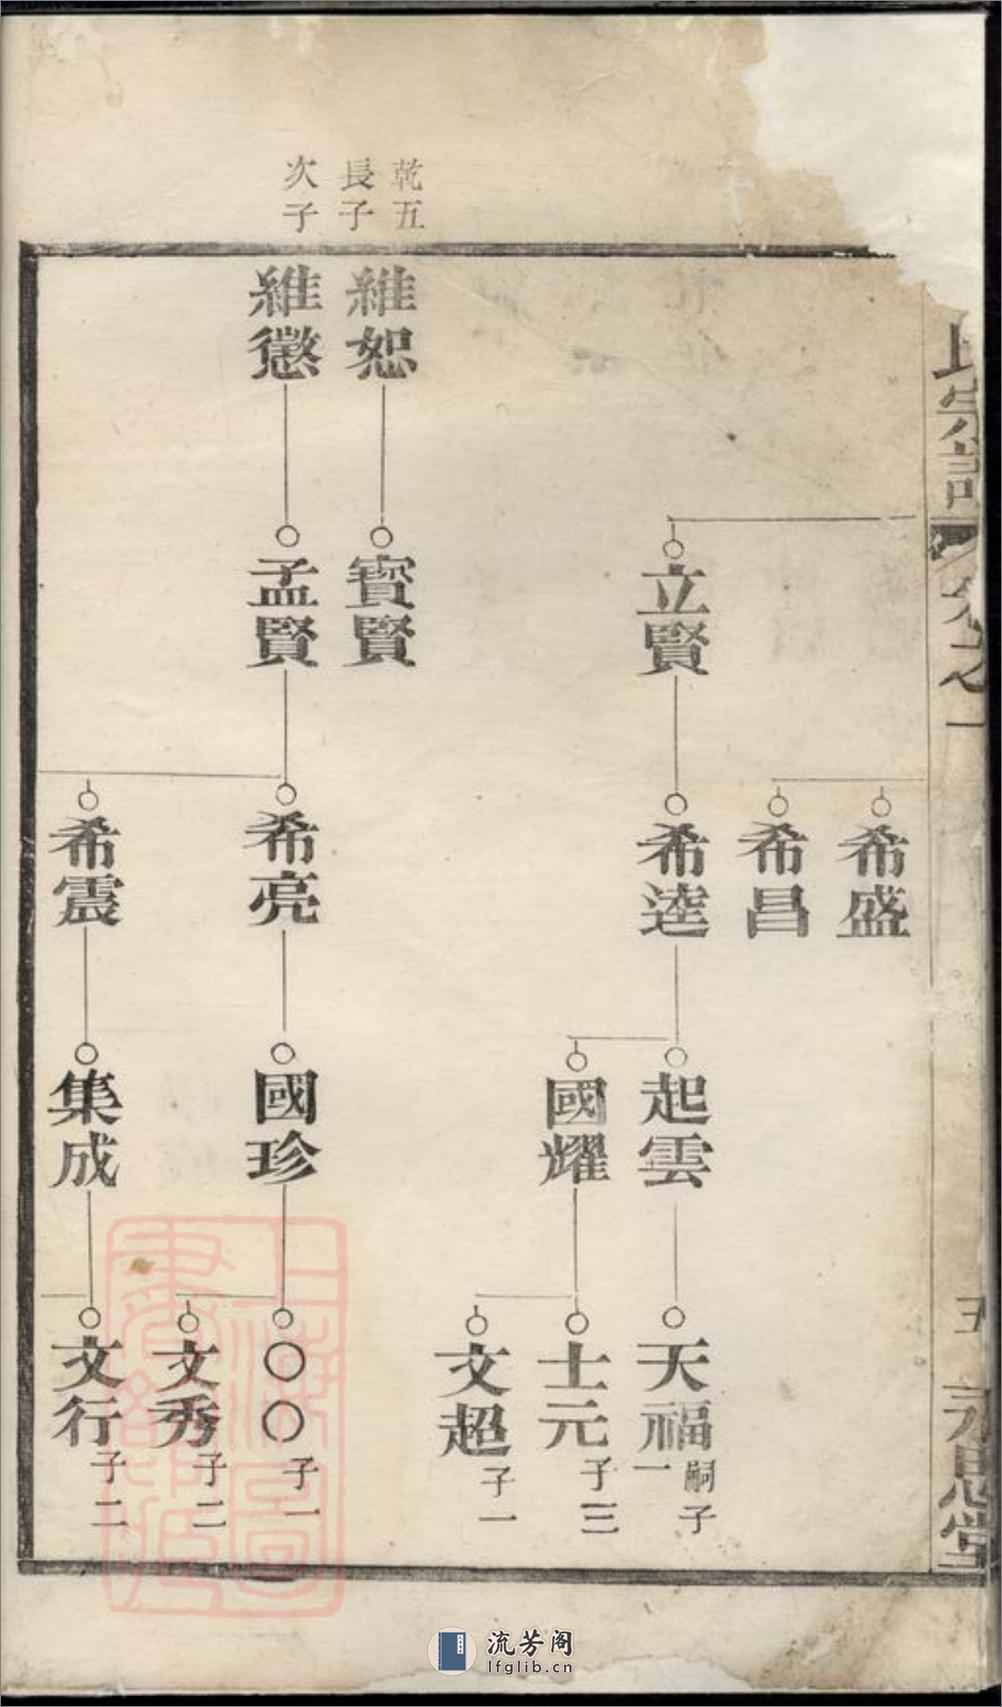 氏宗譜
卷之一
五
永思堂
希盛
希昌
立賢
希逵
起雲
天福
嗣子
一
國耀
士元
子三
文超
子一
乾五
長子
次子
維恕
寳賢
維懲
孟賢
希亮
國珍
〇〇
子一
文秀
子二
希震
集成
文行
子二
上海圖書館藏
流芳阁
lfglib.cn